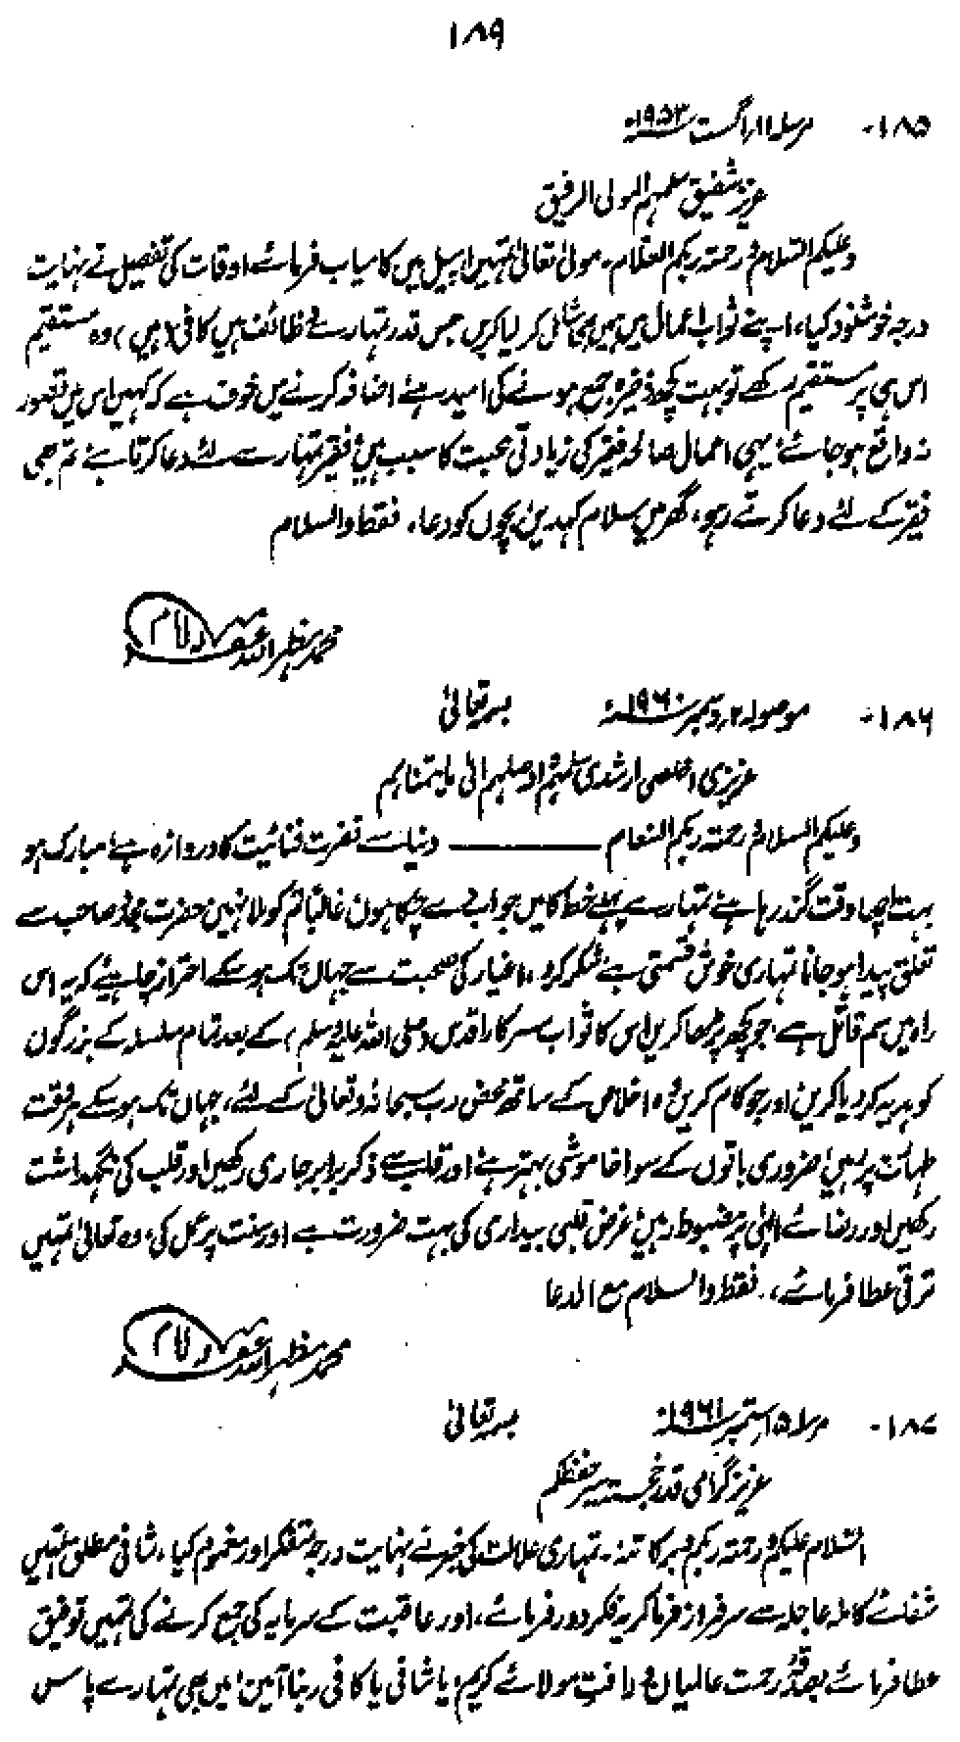 ۱۸۹
۱۸۵- مرسلہ ۱۱/اگست ۱۹۵۳ء
عزیز شفیق سلمہم المولی الرفیق
وعلیکم السلام و رحمتہ ربکم العلام۔ مولیٰ تعالیٰ تمہیں اپیل میں کامیاب فرمائے، اوقات کی تفصیل نے نہایت
درجہ خوشنود کیا، اپنے ثواب اعمال میں ہمیں بھی شامل کر لیا کریں جس قدر تمہارے وظائف ہیں کافی (ہیں) وہ مستقیم
اس ہی پر مستقیم رکھے تو بہت کچھ ذخیرہ جمع ہونے کی امید ہے، اضافہ کرنے میں خوف ہے کہ کہیں اس میں قصور
نہ واقع ہو جائے، یہی اعمال صالحہ فقیر کی زیادتی محبت کا سبب ہیں، فقیر تمہارے لئے دعا کرتا ہے، تم بھی
فقیر کے لئے دعا کرتے رہو، گھر میں سلام کہدیں، بچوں کو دعا، فقط والسلام
محمد مظہر اللہ غفرلہ والام
۱۸۶- موصولہ ۲/دسمبر ۱۹۶۰ء بسمہ تعالیٰ
عزیزی اخلصی ارشدی سلمہم و اوصلہم الی ما یتمناہم
وعلیکم السلام و رحمتہ ربکم المنعام ــــــــــــ دنیا سے نفرت فنائیت کا دروازہ ہے، مبارک ہو
بہت اچھا وقت گذر رہا ہے، تمہارے پہلے خط کا میں جواب دے چکا ہوں غالباً تم کو ملا نہیں حضرت مجدد صاحب سے
تعلق پیدا ہو جانا تمہاری خوش قسمتی ہے، شکر کرو، اغیار کی صحبت سے جہاں تک ہو سکے احتراز چاہیئے کہ یہ اس
راہ میں سم قاتل ہے، جو کچھ پڑھا کریں اس کا ثواب سرکار اقدس (صلی اللہ علیہ وسلم) کے بعد تمام سلسلہ کے بزرگوں
کو ہدیہ کر دیا کریں اور جو کام کریں وہ اخلاص کے ساتھ محض رب سبحانہ وتعالیٰ کے لئے، جہاں تک ہو سکے ہر وقت
طہارت پر رہیں، ضروری باتوں کے سوا خاموشی بہتر ہے، اور قلب سے ذکر برابر جاری رکھیں اور قلب کی نگہداشت
رکھیں اور رضائے الٰہی پر مضبوط رہیں، غرض قلبی بیداری کی بہت ضرورت ہے اور سنت پر عمل کی، وہ تعالیٰ تمہیں
ترقی عطا فرمائے، فقط والسلام مع الدعا
محمد مظہر اللہ غفرلہ والام
۱۸۷- مرسلہ ۱۵/ستمبر ۱۹۶۱ء بسمہ تعالیٰ
عزیز گرامی قدر خجستہ سیر حفظکم
السلام علیکم و رحمتہ ربکم و برکاتہ۔ تمہاری علالت کی خبر نے نہایت درجہ متفکر اور مغموم کیا، شافی مطلق تمہیں
شفائے کاملہ عاجلہ سے سرفراز فرما کر یہ فکر دور فرمائے، اور عاقبت کے سرمایہ کی جمع کرنے کی تمہیں توفیق
عطا فرمائے بصدقہ رحمت عالمیاں و رافت مولائے کریم، یا شافی یا کافی ربنا آمین، میں بھی تمہارے پاس